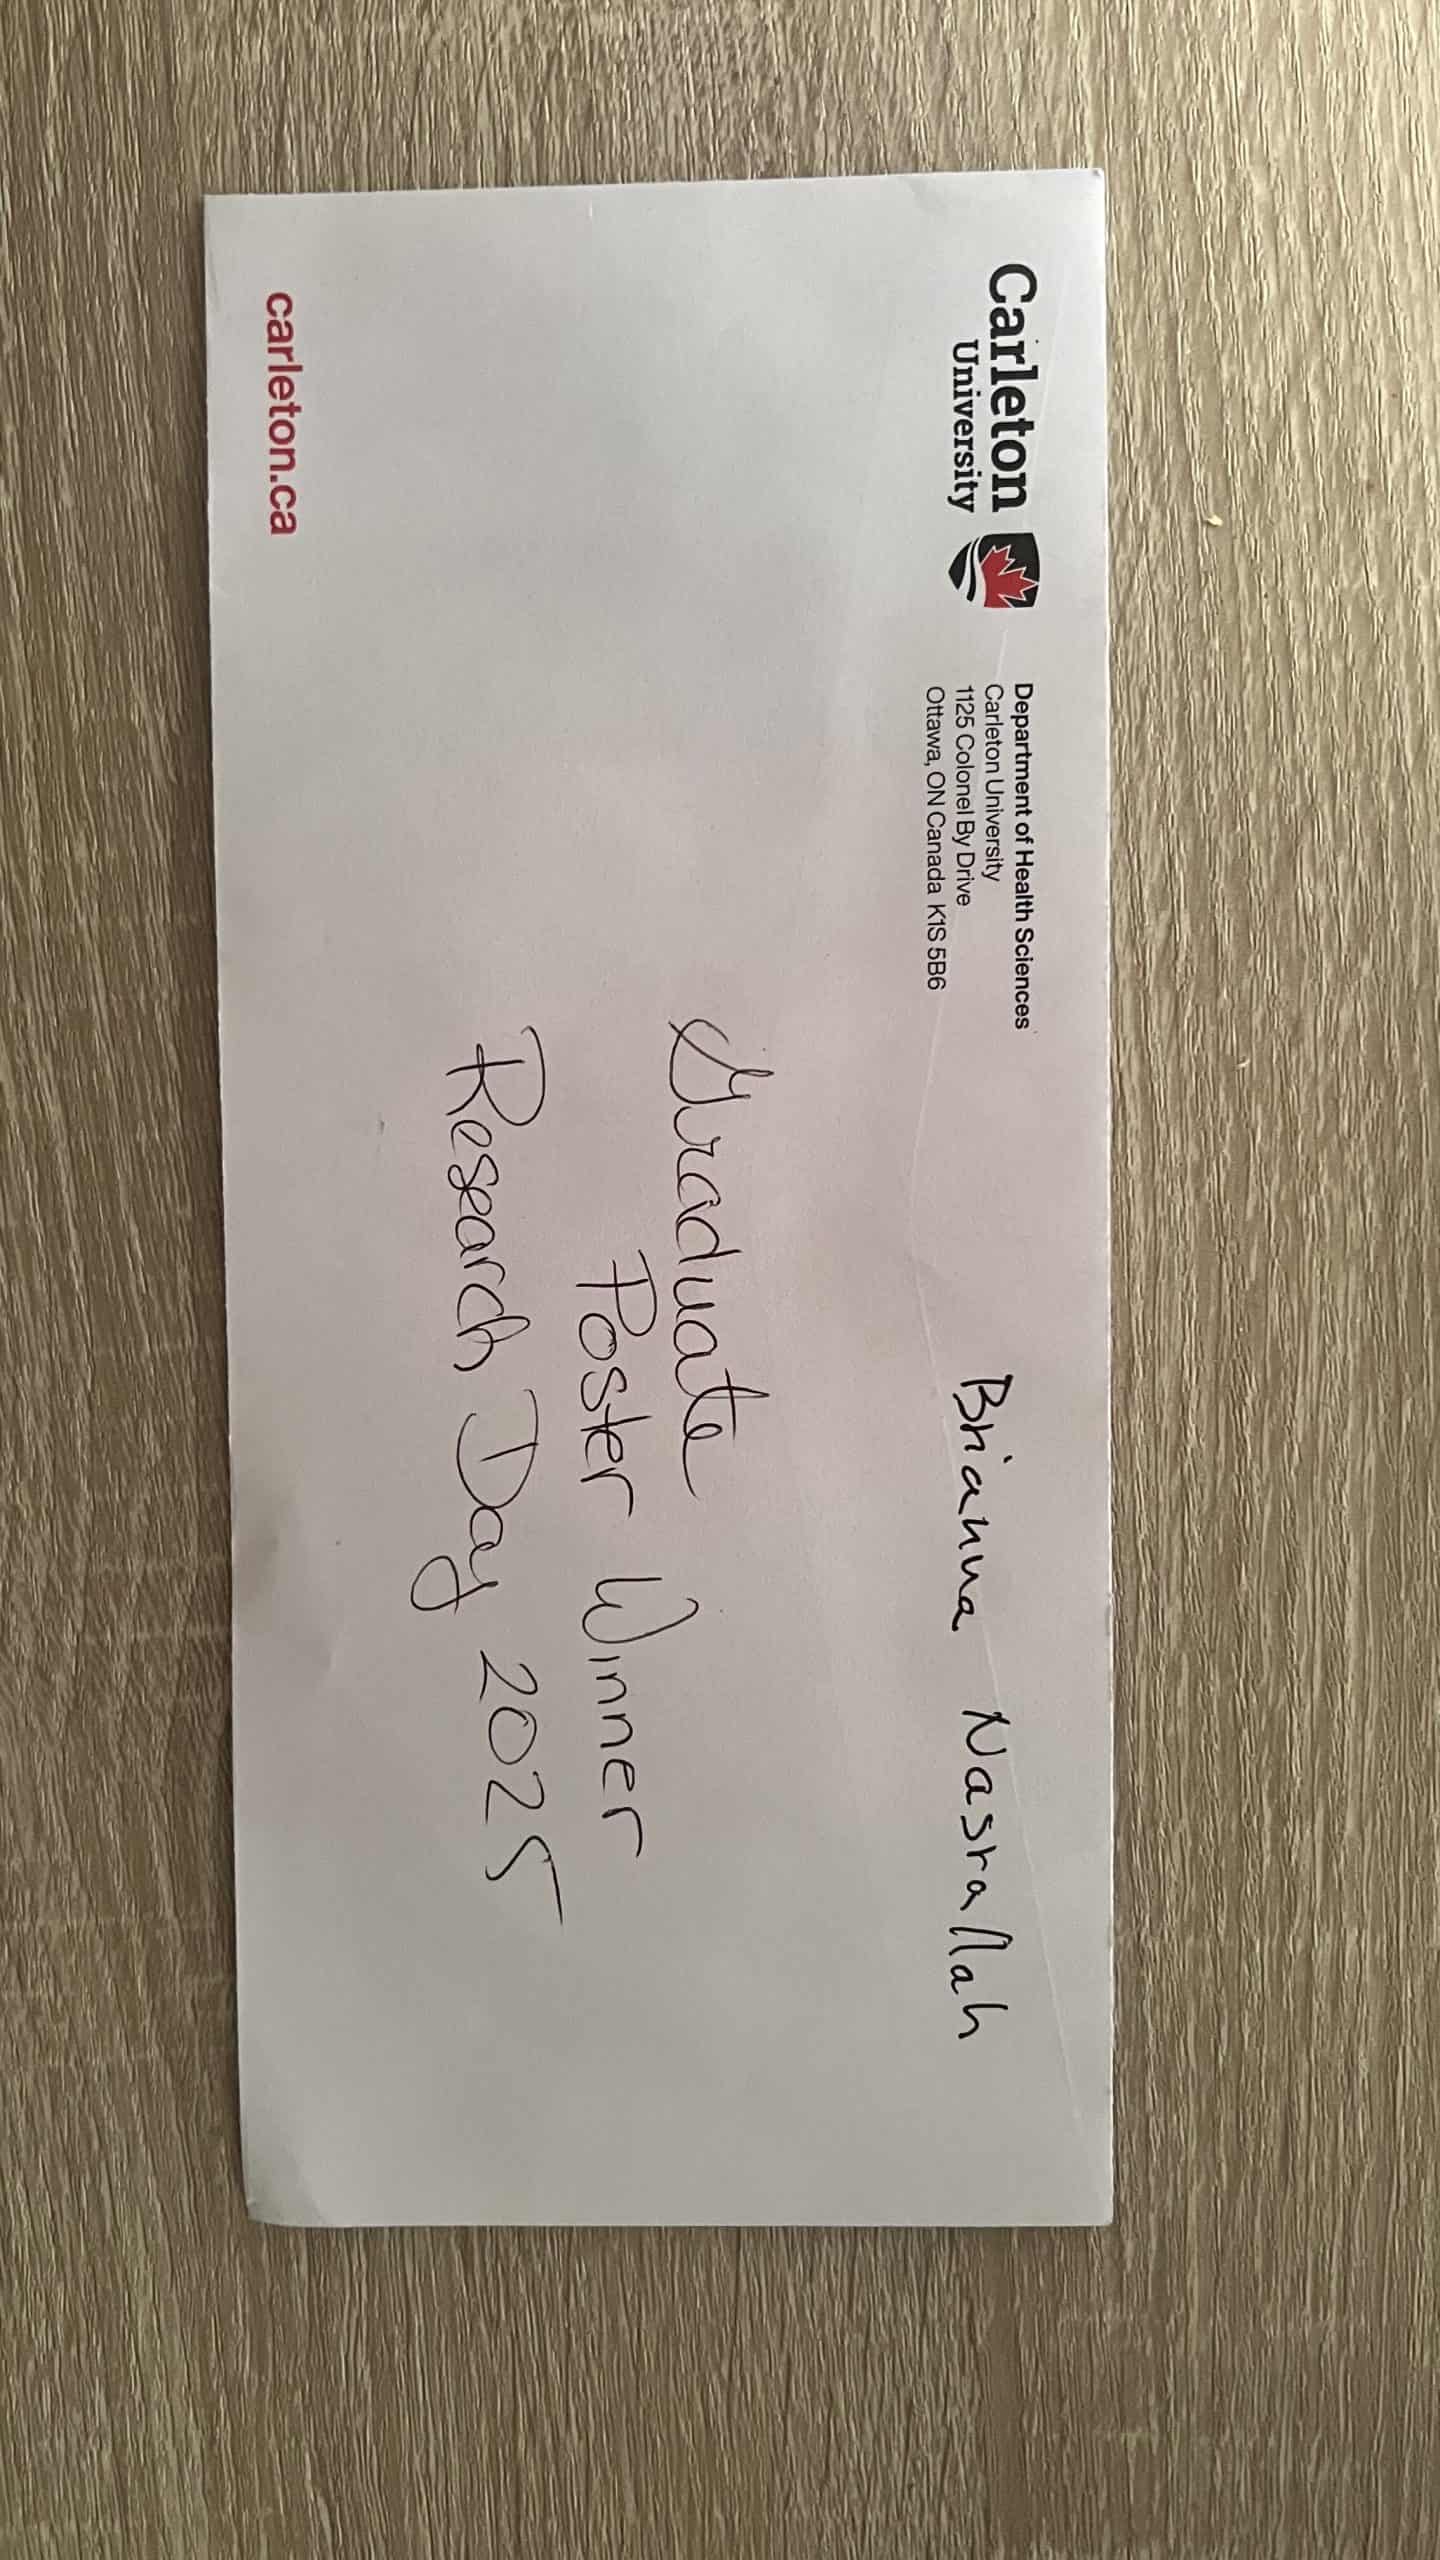 Carleton
University
Department of Health Sciences
Carleton University
1125 Colonel By Drive
Ottawa, ON Canada K1S 5B6
Brianna Nasrallah
Graduate
Poster Winner
Research Day 2025
carleton.ca